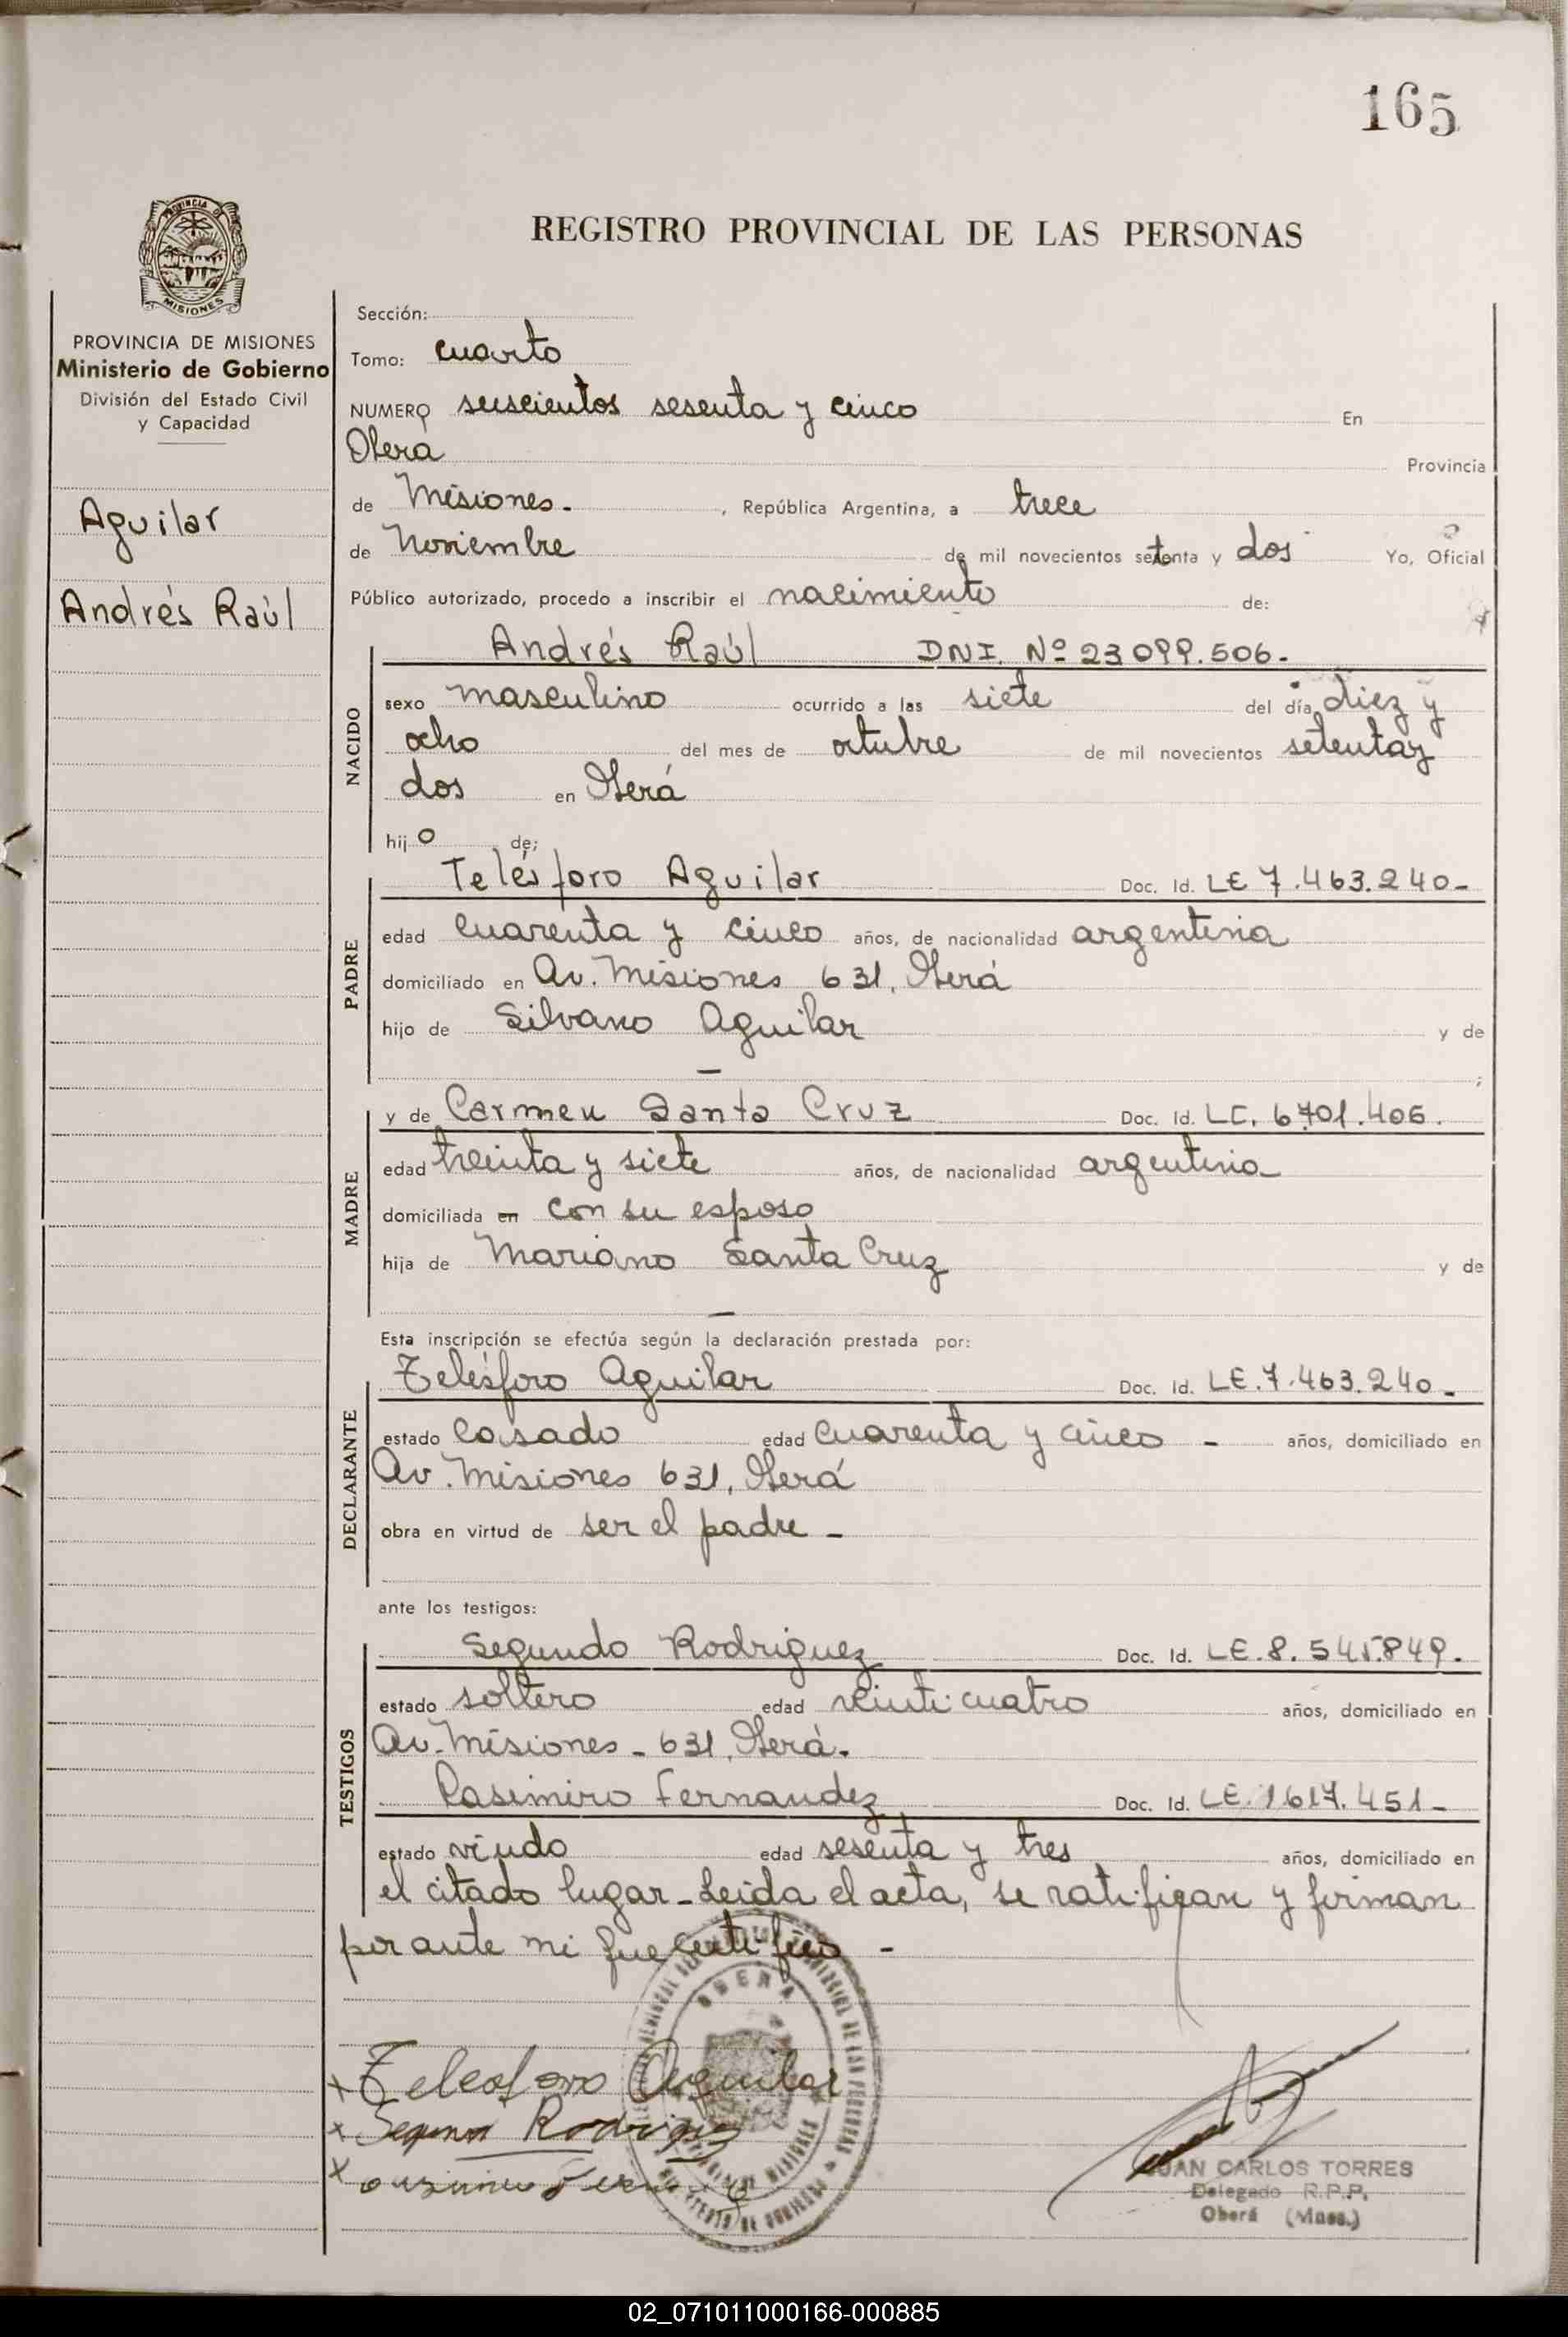 165
PROVINCIA DE
MISIONES
REGISTRO PROVINCIAL DE LAS PERSONAS
PROVINCIA DE MISIONES
Ministerio de Gobierno
División del Estado Civil
y Capacidad
Aguilar
Andrés Raúl
Sección:
Tomo: cuarto
NUMERO seiscientos sesenta y cinco En
Oberá Provincia
de Misiones. , República Argentina, a trece
de Noviembre de mil novecientos setenta y dos Yo, Oficial
Público autorizado, procedo a inscribir el nacimiento de:
NACIDO
Andrés Raúl DNI. Nº 23099.506.
sexo masculino ocurrido a las siete del día diez y
ocho del mes de octubre de mil novecientos setenta y
dos en Oberá
hijo de;
PADRE
Telésforo Aguilar Doc. Id. LE 7.463.240-
edad cuarenta y cinco años, de nacionalidad argentina
domiciliado en Av. Misiones 631, Oberá
hijo de Silvano Aguilar y de
— ;
MADRE
y de Carmen Santa Cruz Doc. Id. LC. 6701.406.
edad treinta y siete años, de nacionalidad argentina
domiciliada en con su esposo
hija de Mariano Santa Cruz y de
—
Esta inscripción se efectúa según la declaración prestada por:
DECLARANTE
Telésforo Aguilar Doc. Id. LE.7.463.240-
estado casado edad cuarenta y cinco - años, domiciliado en
Av. Misiones 631, Oberá
obra en virtud de ser el padre -
ante los testigos:
TESTIGOS
Segundo Rodriguez Doc. Id. LE.8.545.849.
estado soltero edad veinticuatro años, domiciliado en
Av. Misiones - 631, Oberá.
Casimiro Fernandez Doc. Id. LE.1617.451-
estado viudo edad sesenta y tres años, domiciliado en
el citado lugar - Leida el acta, se ratifican y firman
por ante mi que certifico -
OBERA
x Telesforo Aguilar
x Segundo Rodriguez
x
JUAN CARLOS TORRES
Delegado R.P.P.
Oberá (Mnes.)
02_071011000166-000885